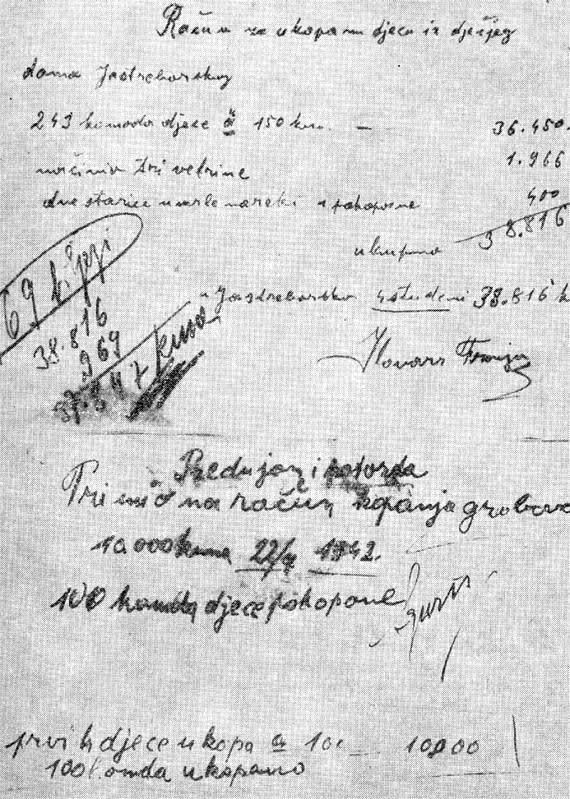 Račun za ukopanu djecu iz dječjeg
doma Jastrebarskog
243 komada djece à 150 kun. — 36.450.
načinio tri vetrine 1.966
dve starice umrle naseki i pokopane 400
ukupno 38.816
u Jastrebarsko 4 studeni 38.816 k
Ilovara Franjo
69
38.816
969
37.847 kuna
Predujam i potvrda
Primio na račun kopanja grobova
10.000 kuna 22/ 1942.
100 komada djece pokopane
prvih djece ukopa à 100 — 10000
100 komda ukopano